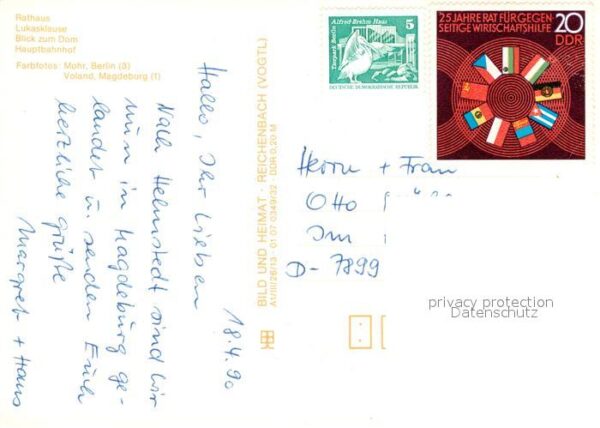 Rathaus
Lukasklause
Blick zum Dom
Hauptbahnhof
Farbfotos: Mohr, Berlin (8)
Voland, Magdeburg (1)
18.4.90
Hallo, Ihr Lieben
Nach Helmstedt sind wir
nun in Magdeburg ge-
landet u. senden Euch
herzliche Grüße
Margret + Hans
BILD UND HEIMAT · REICHENBACH (VOGTL)
A1/III/26/13 · 01 07 0349/32 · DDR 0,20 M
Alfred-Brehm Haus
Tierpark Berlin
5
DEUTSCHE DEMOKRATISCHE REPUBLIK
25 JAHRE RAT FÜR GEGEN-
SEITIGE WIRTSCHAFTSHILFE
20
DDR
Herrn + Frau
Otto
Im
D-7899
privacy protection
Datenschutz